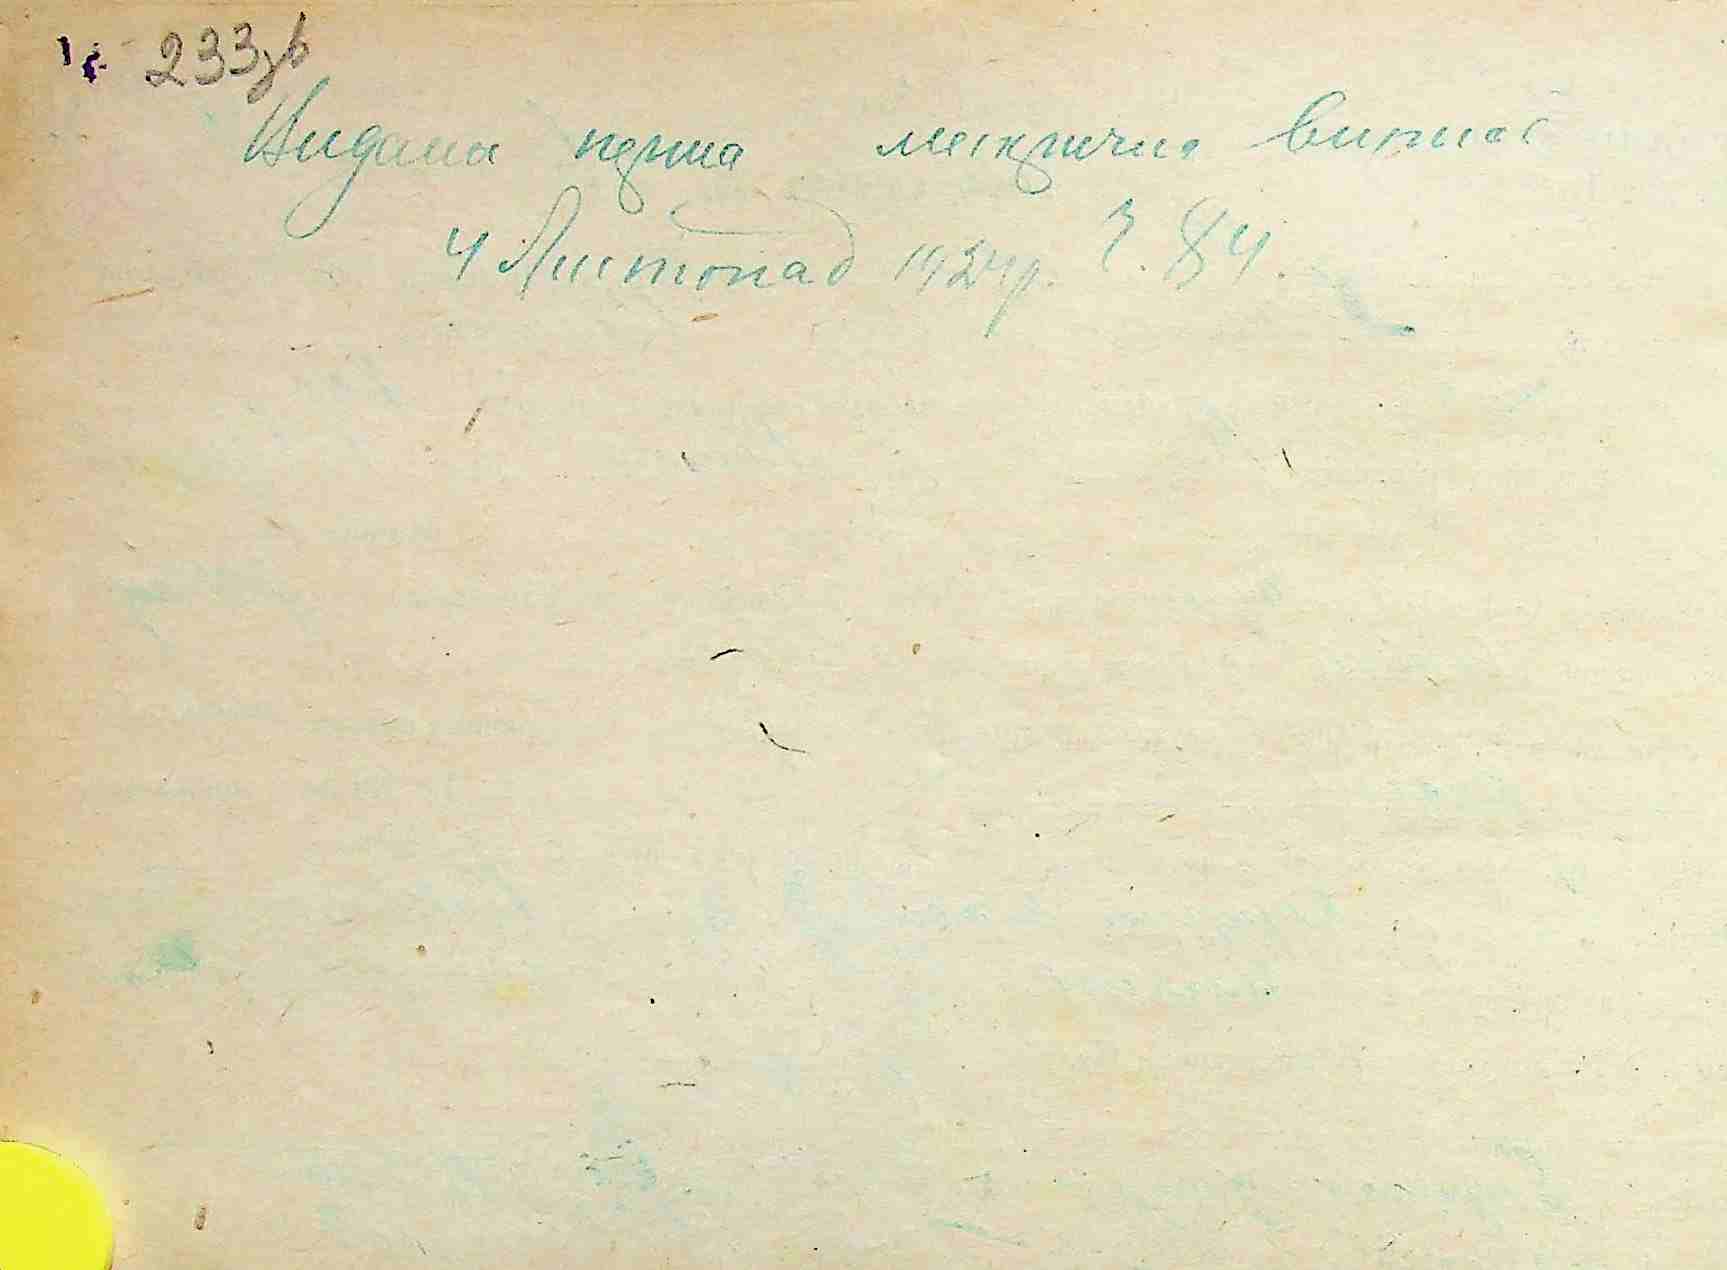 233зв
Видана перша метрична випис
4 Листопад 1924р. Ч. 84.